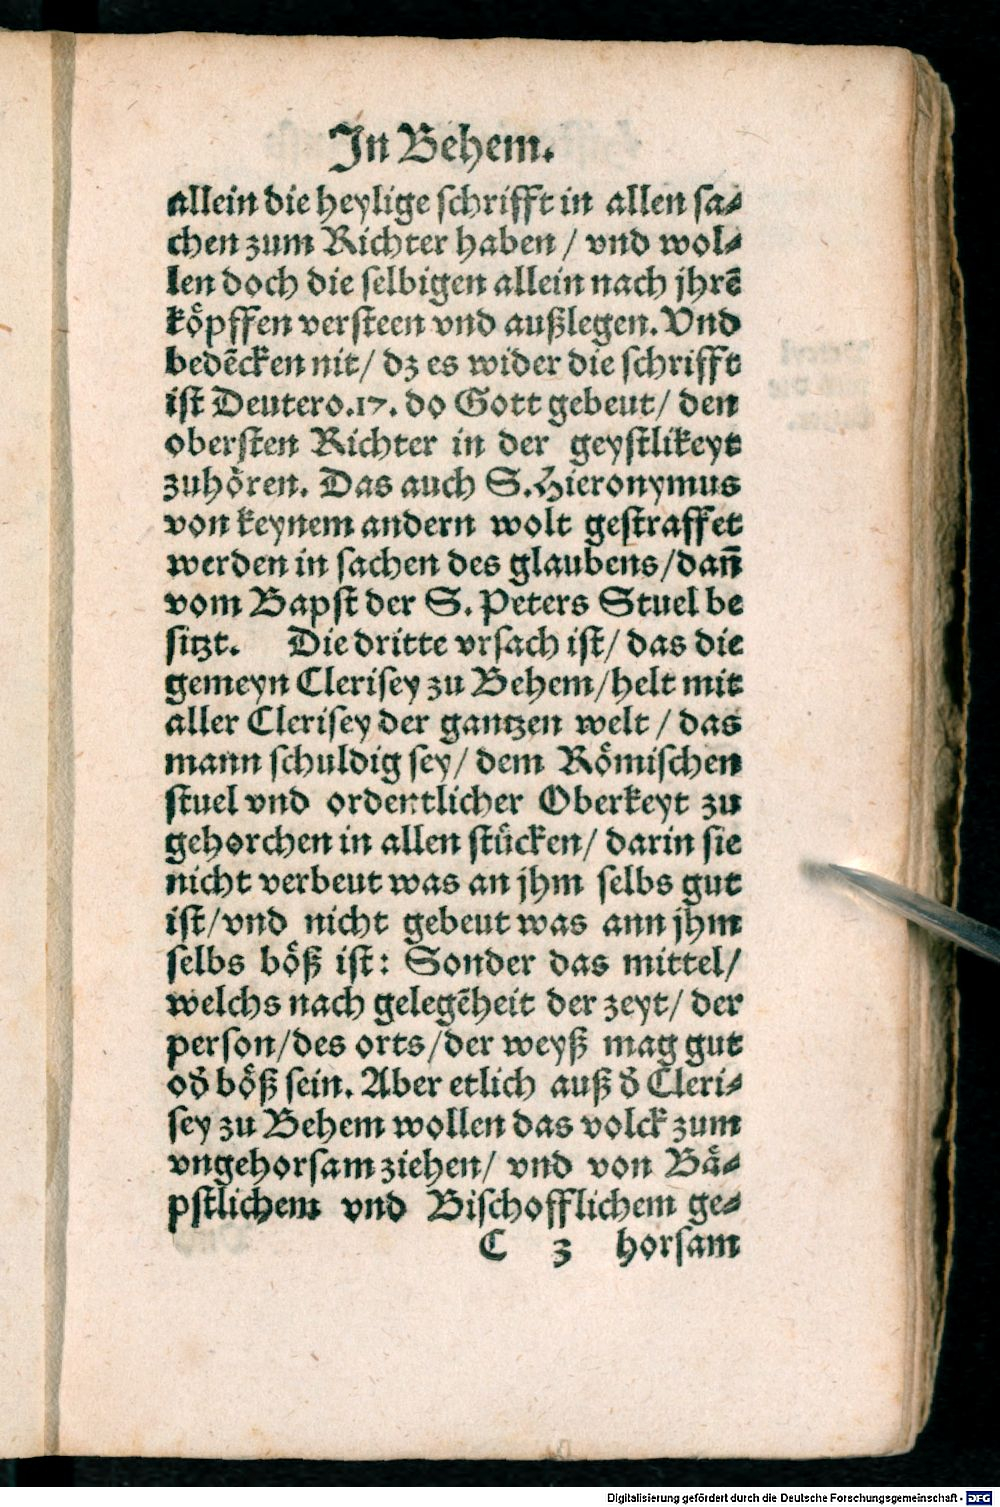 In Behem.
allein die heylige schrifft in allen sa-
chen zum Richter haben / vnd wol-
len doch die selbigen allein nach jhrē
köpffen versteen vnd außlegen. Vnd
bedēcken nit / dz es wider die schrifft
ist Deutero.17. do Gott gebeut / den
obersten Richter in der geystlikeyt
zuhören. Das auch S. Hieronymus
von keynem andern wolt gestraffet
werden in sachen des glaubens / dañ
vom Bapst der S. Peters Stuel be
sitzt. Die dritte vrsach ist / das die
gemeyn Clerisey zu Behem / helt mit
aller Clerisey der gantzen welt / das
mann schuldig sey / dem Römischen
stuel vnd ordentlicher Oberkeyt zu
gehorchen in allen stücken / darin sie
nicht verbeut was an jhm selbs gut
ist / vnd nicht gebeut was ann jhm
selbs böß ist: Sonder das mittel /
welchs nach gelegēheit der zeyt / der
person / des orts / der weyß mag gut
od̄ böß sein. Aber etlich auß d̄ Cleri-
sey zu Behem wollen das volck zum
vngehorsam ziehen / vnd von Bä-
pstlichem vnd Bischofflichem ge-
C 3 horsam
Digitalisierung gefördert durch die Deutsche Forschungsgemeinschaft - DFG